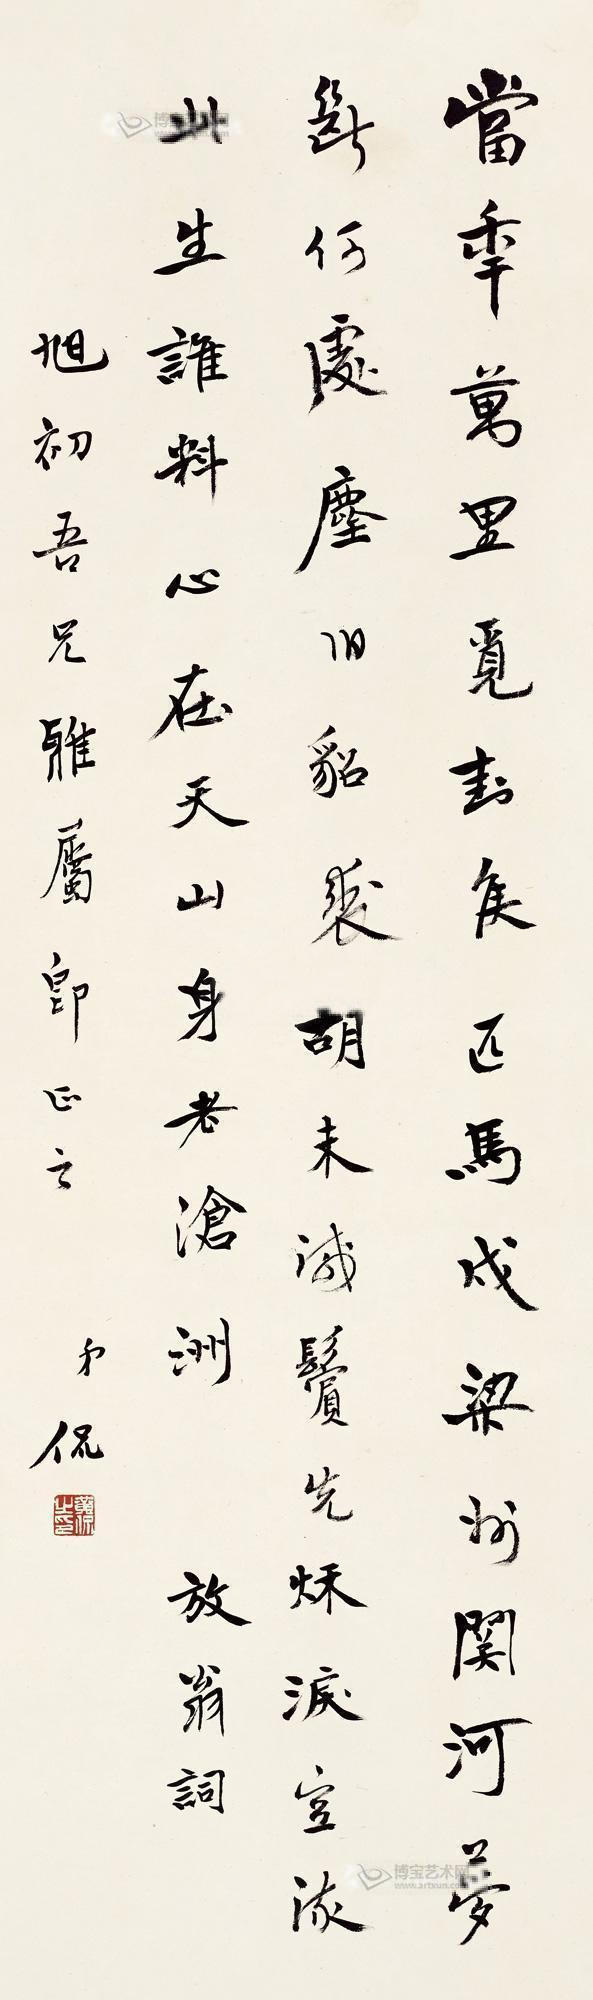 當年萬里覓封侯匹馬戍梁州關河夢
斷何處塵旧貂裘胡未滅鬢先烁淚空流
此生誰料心在天山身老滄洲 放翁詞
旭初吾兄雅屬即正之
弟侃
黃侃之印
博宝艺术网
www.artxun.com